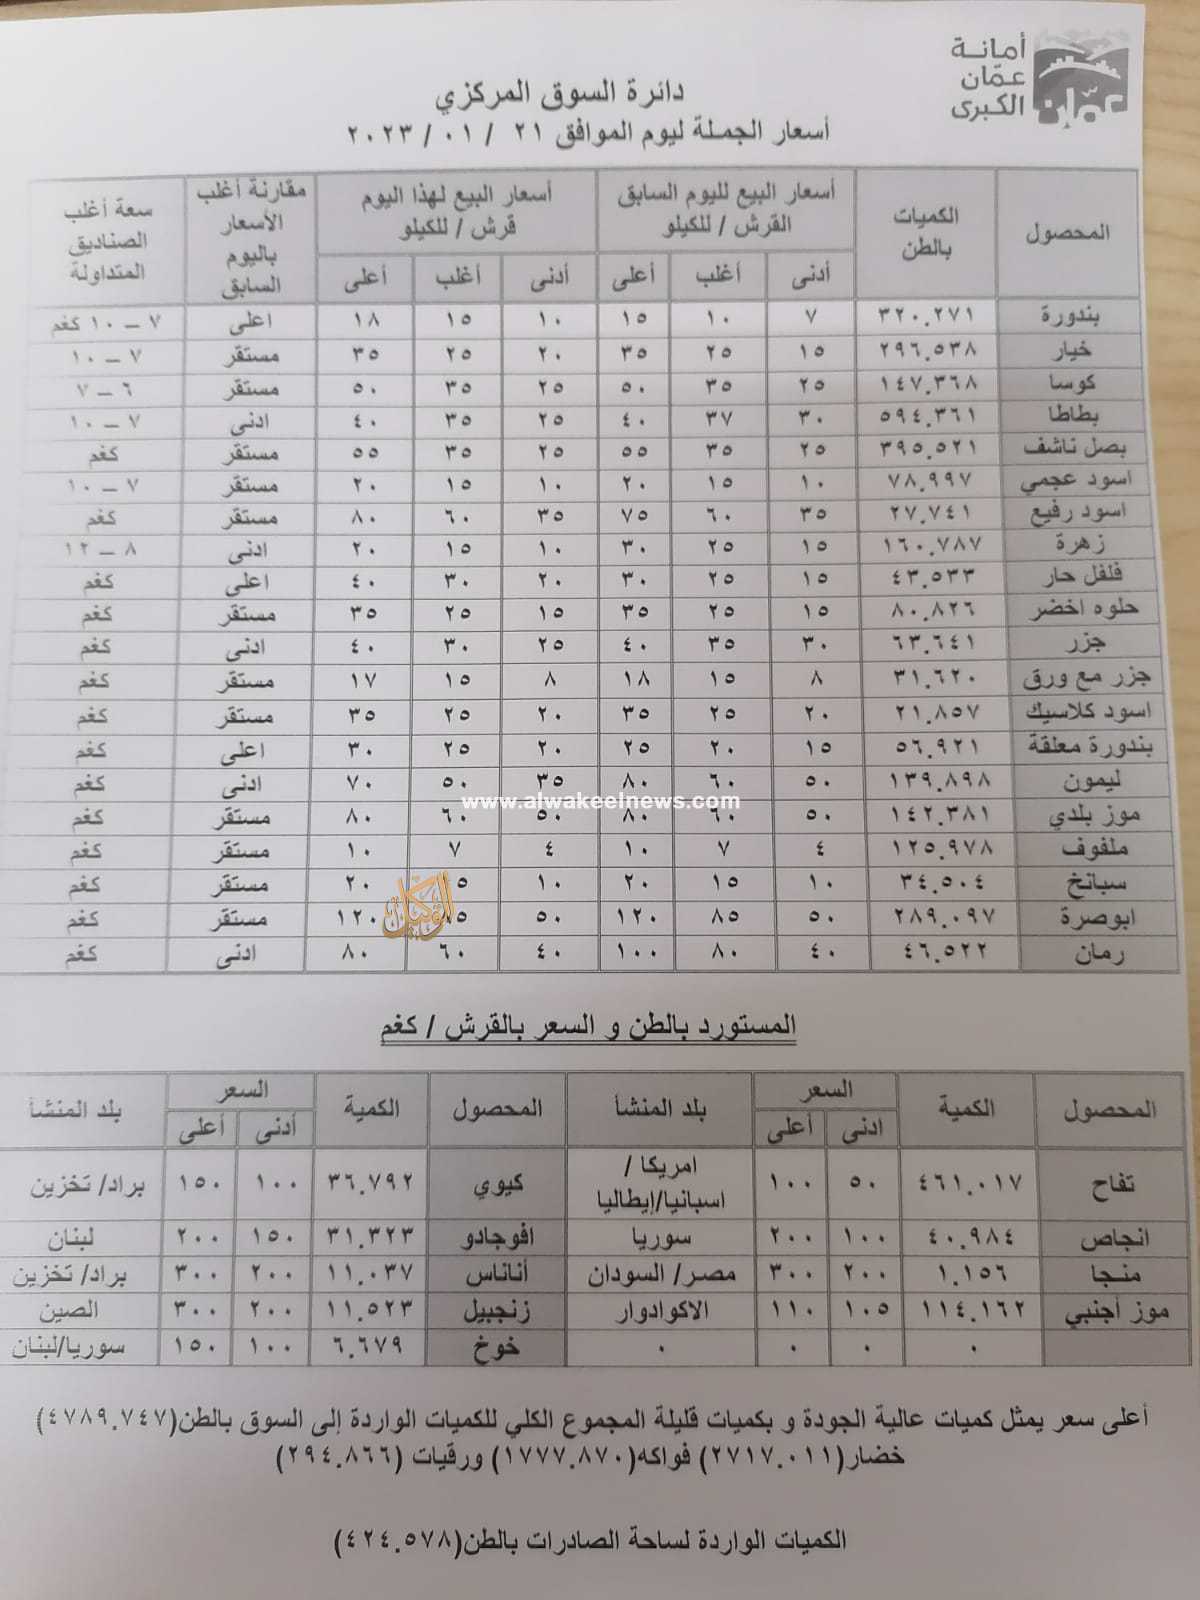 أمانة
عمّان
الكبرى
عمّان
دائرة السوق المركزي
أسعار الجملة ليوم الموافق ٢١ / ٠١ / ٢٠٢٣
المحصول | الكميات بالطن | أسعار البيع لليوم السابق القرش / للكيلو | أسعار البيع لهذا اليوم قرش / للكيلو | مقارنة أغلب الأسعار باليوم السابق | سعة أغلب الصناديق المتداولة
أدنى | أغلب | أعلى | أدنى | أغلب | أعلى
بندورة | ٣٢٠.٢٧١ | ٧ | ١٠ | ١٥ | ١٠ | ١٥ | ١٨ | اعلى | ٧ – ١٠ كغم
خيار | ٢٩٦.٥٣٨ | ١٥ | ٢٥ | ٣٥ | ٢٠ | ٢٥ | ٣٥ | مستقر | ٧ – ١٠
كوسا | ١٤٧.٣٦٨ | ٢٥ | ٣٥ | ٥٠ | ٢٥ | ٣٥ | ٥٠ | مستقر | ٦ – ٧
بطاطا | ٥٩٤.٣٦١ | ٣٠ | ٣٧ | ٤٠ | ٢٥ | ٣٥ | ٤٠ | ادنى | ٧ – ١٠
بصل ناشف | ٣٩٥.٥٢١ | ٢٥ | ٣٥ | ٥٥ | ٢٥ | ٣٥ | ٥٥ | مستقر | كغم
اسود عجمي | ٧٨.٩٩٧ | ١٠ | ١٥ | ٢٠ | ١٠ | ١٥ | ٢٠ | مستقر | ٧ – ١٠
اسود رفيع | ٢٧.٧٤١ | ٣٥ | ٦٠ | ٧٥ | ٣٥ | ٦٠ | ٨٠ | مستقر | كغم
زهرة | ١٦٠.٧٨٧ | ١٥ | ٢٥ | ٣٠ | ١٠ | ١٥ | ٢٠ | ادنى | ٨ – ١٢
فلفل حار | ٤٣.٥٣٣ | ١٥ | ٢٥ | ٣٠ | ٢٠ | ٣٠ | ٤٠ | اعلى | كغم
حلوه اخضر | ٨٠.٨٢٦ | ١٥ | ٢٥ | ٣٥ | ١٥ | ٢٥ | ٣٥ | مستقر | كغم
جزر | ٦٣.٦٤١ | ٣٠ | ٣٥ | ٤٠ | ٢٥ | ٣٠ | ٤٠ | ادنى | كغم
جزر مع ورق | ٣١.٦٢٠ | ٨ | ١٥ | ١٨ | ٨ | ١٥ | ١٧ | مستقر | كغم
اسود كلاسيك | ٢١.٨٥٧ | ٢٠ | ٢٥ | ٣٥ | ٢٠ | ٢٥ | ٣٥ | مستقر | كغم
بندورة معلقة | ٥٦.٩٢١ | ١٥ | ٢٠ | ٢٥ | ٢٠ | ٢٥ | ٣٠ | اعلى | كغم
ليمون | ١٣٩.٨٩٨ | ٥٠ | ٦٠ | ٨٠ | ٣٥ | ٥٠ | ٧٠ | ادنى | كغم
www.alwakeelnews.com
موز بلدي | ١٤٢.٣٨١ | ٥٠ | ٦٠ | ٨٠ | ٥٠ | ٦٠ | ٨٠ | مستقر | كغم
ملفوف | ١٢٥.٩٧٨ | ٤ | ٧ | ١٠ | ٤ | ٧ | ١٠ | مستقر | كغم
سبانخ | ٣٤.٥٠٤ | ١٠ | ١٥ | ٢٠ | ١٠ | ٢٠ | مستقر | كغم
الوكيل
ابوصرة | ٢٨٩.٠٩٧ | ٥٠ | ٨٥ | ١٢٠ | ٥٠ | ٨٥ | ١٢٠ | مستقر | كغم
رمان | ٤٦.٥٢٢ | ٤٠ | ٨٠ | ١٠٠ | ٤٠ | ٦٠ | ٨٠ | ادنى | كغم
المستورد بالطن و السعر بالقرش / كغم
المحصول | الكمية | السعر | بلد المنشأ | المحصول | الكمية | السعر | بلد المنشأ
ادنى | أعلى | أدنى | أعلى
تفاح | ٤٦١.٠١٧ | ٥٠ | ١٠٠ | امريكا / اسبانيا/إيطاليا | كيوي | ٣٦.٧٩٢ | ١٠٠ | ١٥٠ | براد/ تخزين
انجاص | ٤٠.٩٨٤ | ١٠٠ | ٢٠٠ | سوريا | افوجادو | ٣١.٣٢٣ | ١٥٠ | ٢٠٠ | لبنان
منجا | ١.١٥٦ | ٢٠٠ | ٣٠٠ | مصر/ السودان | أناناس | ١١.٠٣٧ | ٢٠٠ | ٣٠٠ | براد/ تخزين
موز أجنبي | ١١٤.١٦٢ | ١٠٥ | ١١٠ | الاكوادوار | زنجبيل | ١١.٥٢٣ | ٢٠٠ | ٣٠٠ | الصين
٠ | ٠ | ٠ | ٠ | خوخ | ٦.٦٧٩ | ١٠٠ | ١٥٠ | سوريا/لبنان
أعلى سعر يمثل كميات عالية الجودة و بكميات قليلة المجموع الكلي للكميات الواردة إلى السوق بالطن(٤٧٨٩.٧٤٧)
خضار(٢٧١٧.٠١١) فواكه(١٧٧٧.٨٧٠) ورقيات (٢٩٤.٨٦٦)
الكميات الواردة لساحة الصادرات بالطن(٤٢٤.٥٧٨)